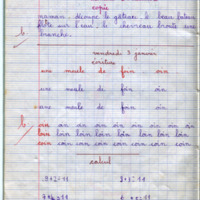 copie
maman découpe le gâteau. le beau bateau
flotte sur l'eau. le chevreau broute une
branche.
vendredi 3 janvier
écriture
une meule de foin oin
une meule de foin oin
une meule de foin oin
oin oin oin oin oin oin oin oin
loin loin loin loin loin loin loin
coin coin coin coin coin coin coin
calcul